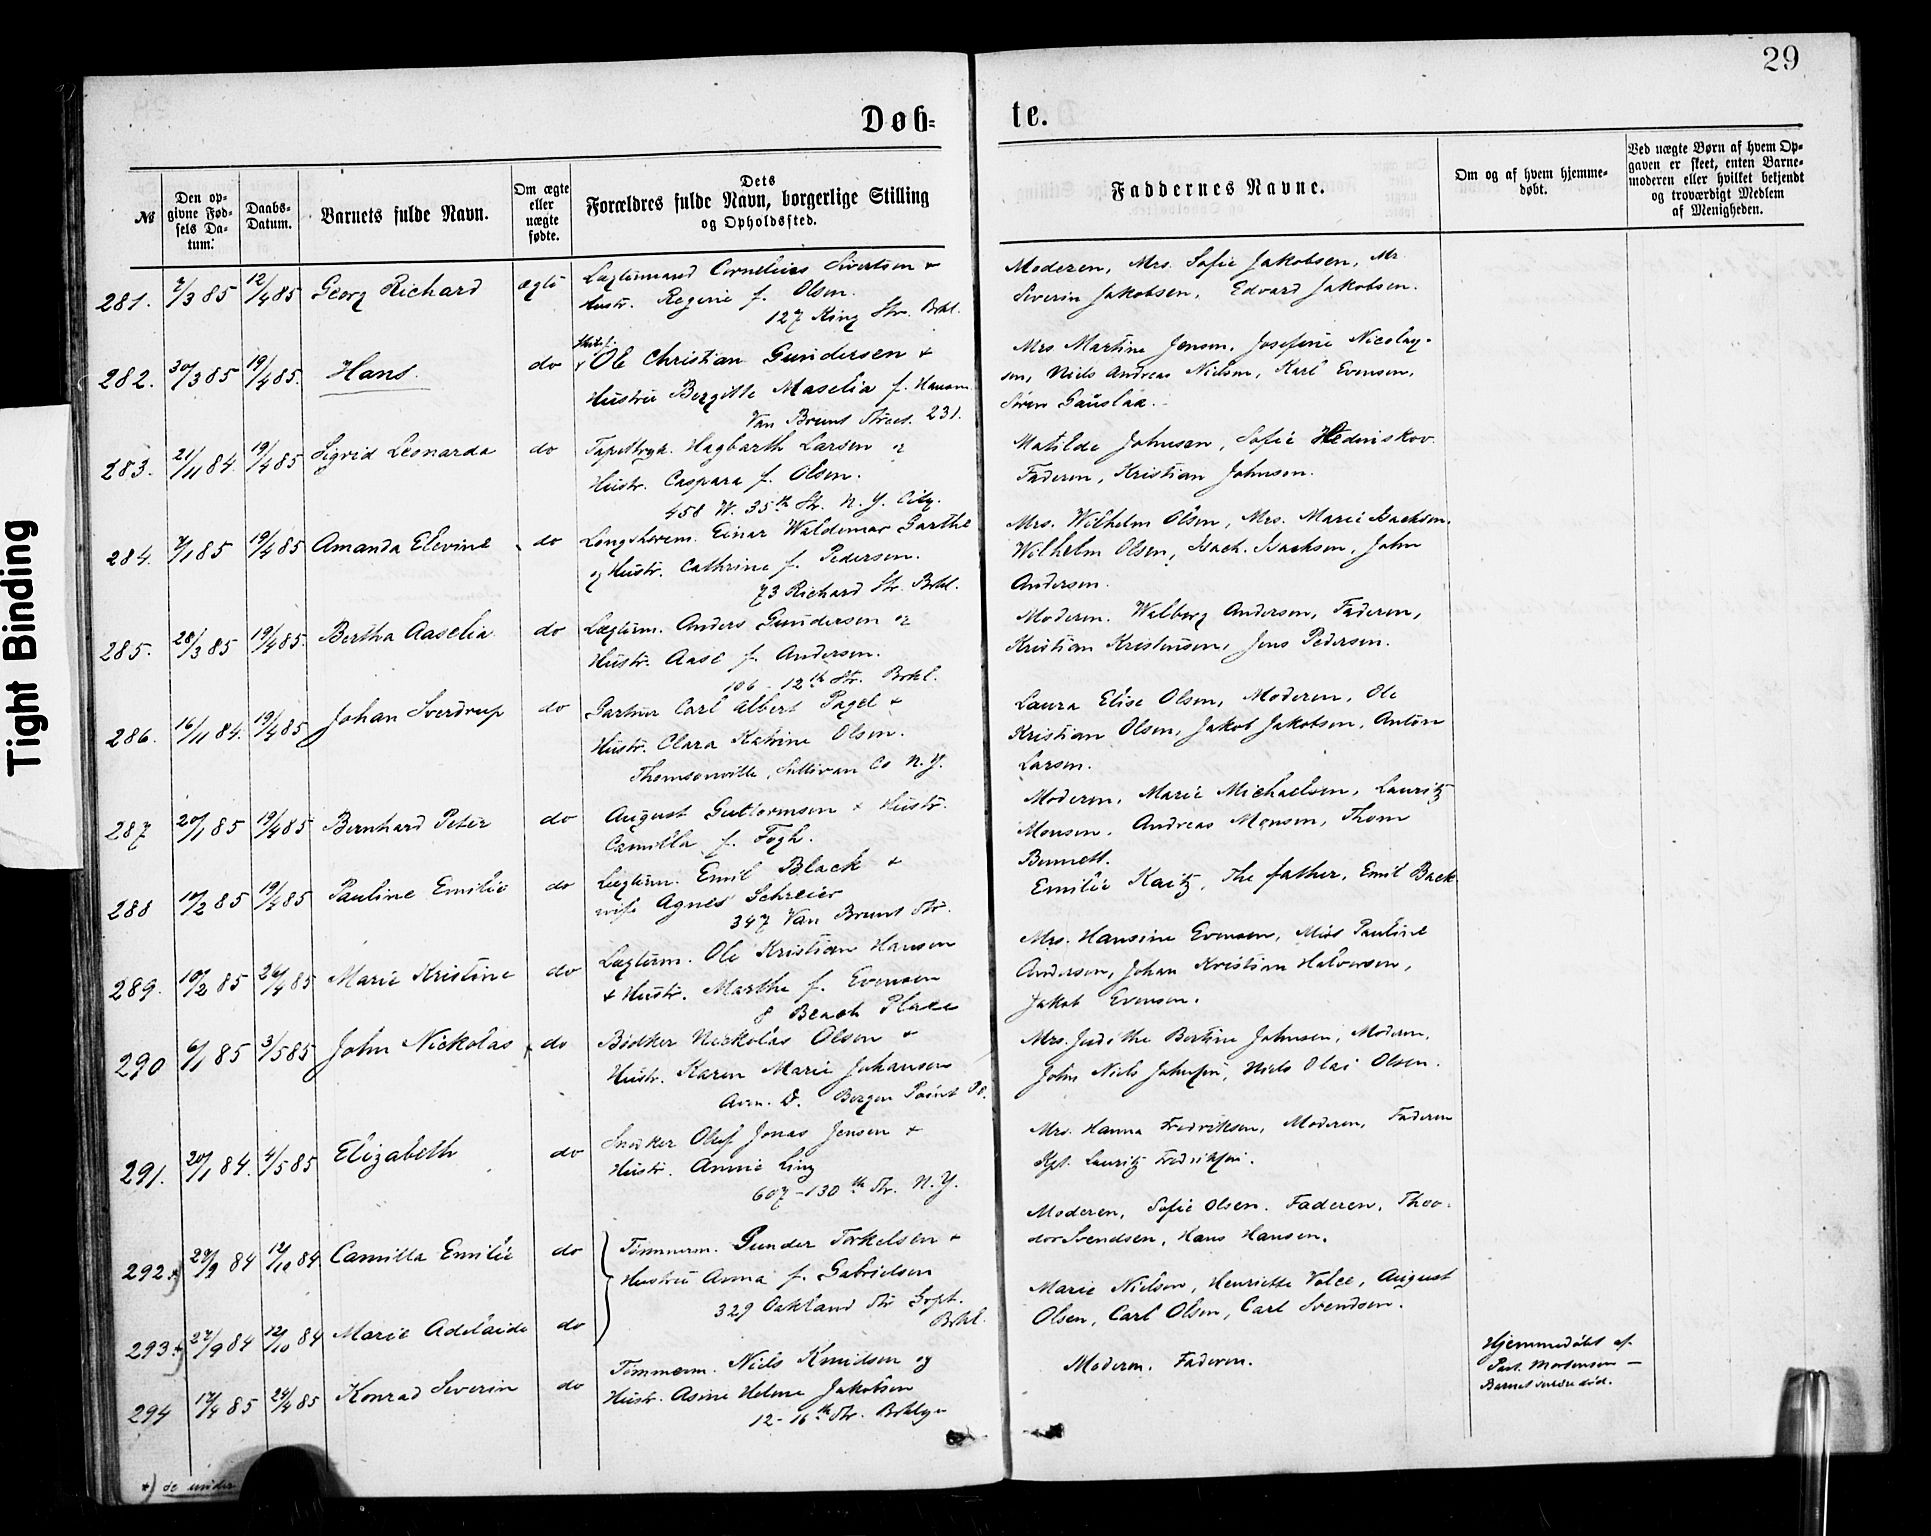 29
Døb-
te.
№
Den op-
givne Fød-
sels Da-
tum.
Daabs-
Datum.
Barnets fulde Navn.
Om ægte
eller
uægte
fødte.
Dets
Forældres fulde Navn, borgerlige Stilling
og Opholdssted.
Faddernes Navne.
Om og af hvem hjemme-
døbt.
Ved uægte Børn af hvem Op-
gaven er skeet, enten Barne-
moderen eller hvilket bekjendt
og troværdigt Medlem
af Menigheden.
281. 7/3 85 12/4 85 Georg Richard ægte Lægtermand Cornelius Sivertsen +
Hustr. Regine f. Olsen.
127 King Str. Brkl.
Moderen, Mrs. Sofie Jakobsen, Mr.
Severin Jakobsen, Edvard Jakobsen.
282. 30/3 85 19/4 85. Hans. do Ole Christian Gundersen +
Hustru Bergitte Maselia f. Hansen
Van Brunt Street. 231.
Mrs Martine Jensen, Josefine Nicolay-
sen, Niels Andreas Nielsen, Karl Evensen,
Søren Gauslaa.
283. 21/11 84. 19/4 85 Sigrid Leonarda do Hagbarth Larsen og
Hustr. Caspara f. Olsen.
458 W. 35th Str. N. Y. City.
Matilde Johnsen, Sofie Hedniskov.
Faderen, Kristian Johnsen.
284. 7/1 85 19/4 85 Amanda Elevine do Einar Waldemar Garthe
og Hustr. Cathrine f. Pedersen.
73 Richard Str. Brkl.
Mrs. Wilhelm Olsen, Mrs. Marie Isachsen.
Wilhelm Olsen, Isach. Isachsen, John
Andersen.
285. 28/3 85 19/4 85. Bertha Aaselia do Lægterm. Anders Gundersen og
Hustr. Aase f. Andersen.
106 - 12th Str. Brkl.
Moderen. Walborg Andersen, Faderen,
Kristian Kristensen, Jens Pedersen.
286. 16/11 84. 19/4 85 Johan Sverdrup do Gartner Carl Albert Pagel +
Hustr. Clara Katrine Olsen.
Thomsonville, Sullivan Co N. Y.
Laura Elise Olsen, Moderen, Ole
Kristian Olsen, Jakob Jakobsen, Anton
Larsen.
287 20/1 85 19/4 85 Bernhard Peter do August Guttormsen + Hustr.
Camilla f. Fogh.
Moderen, Marie Michaelsen, Lauritz
Monsen. Andreas Monsen, Thom
Bennett.
288 10/2 85 19/4 85 Pauline Emilie do Lægterm. Emil Black +
wife Agnes Schreier
347 Van Brunt Str.
Emilie Kaitz, The father, Emil Back
289. 10/2 85 26/4 85 Marie Kristine do Lægterm. Ole Kristian Hansen
+ Hustr. Marthe f. Evensen
8 Beach Place
Mrs. Hansine Evensen, Miss Pauline
Andersen, Johan Kristian Halvorsen,
Jakob Evensen.
290 6/1 85 3/5 85 John Nickolas do Bødker Nickolas Olsen +
Hustr. Karen Marie Johansen
Aven. D. Bergen Point
Mrs. Judithe Bertine Johnsen, Moderen,
John Niels Johnsen, Niels Olai Olsen.
291. 20/1 84. 4/5 85 Elizabeth do Snedker Oluf Jonas Jensen +
Hustr. Annie Ling
607 - 130th Str. N. Y.
Mrs. Hanna Fredriksen, Moderen, Faderen
Kpt. Lauritz Fredriksen.
292 *) 29/9 84 12/10 84 Camilla Emilie do Tømmerm. Gunder Torkelsen +
Hustru Anna f. Gabrielsen
329 Oakland Str Grpt.
Brkl.
Moderen, Sofie Olsen. Faderen, Theo-
dor Svendsen, Hans Hansen.
293 *) 27/9 84 12/10 84 Marie Adelaide do
Marie Nielsen, Henriette Volce, August
Olsen, Carl Olsen, Carl Svendsen.
294 17/4 85 24/4 85 Konrad Severin do Tømmerm. Niels Knudsen og
Hustr. Asine Helene Jakobsen
12 - 16th Str. Brklyn
Moderen. Faderen.
Hjemmedøbt af
Past. Mortensen —
Barnet senere død.
*) se under
Tight Binding